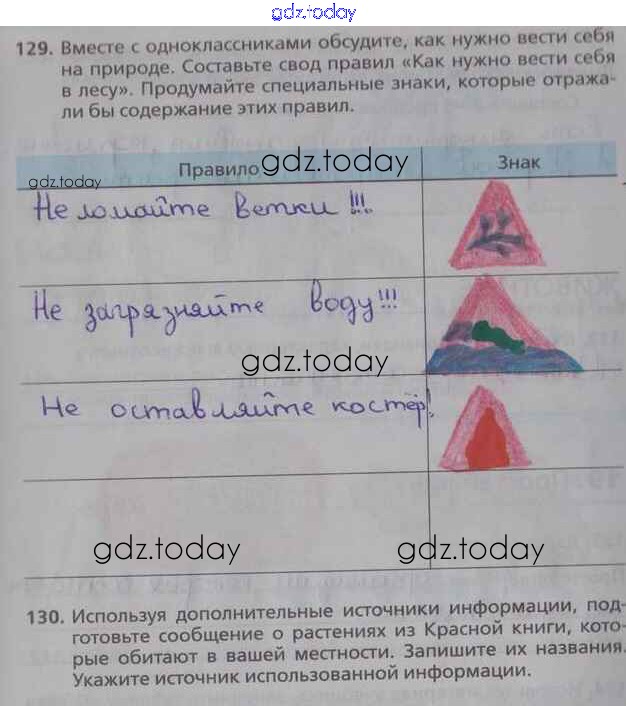 gdz.today
129. Вместе с одноклассниками обсудите, как нужно вести себя
на природе. Составьте свод правил «Как нужно вести себя
в лесу». Продумайте специальные знаки, которые отража-
ли бы содержание этих правил.
Правило gdz.today Знак
gdz.today
Не ломайте ветки!!!
Не загрязняйте воду!!!
gdz.today
Не оставляйте костёр!
gdz.today gdz.today
130. Используя дополнительные источники информации, под-
готовьте сообщение о растениях из Красной книги, кото-
рые обитают в вашей местности. Запишите их названия.
Укажите источник использованной информации.